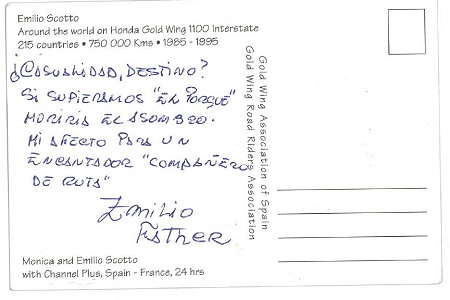 Emilio Scotto
Around the world on Honda Gold Wing 1100 Interstate
215 countries • 750 000 Kms • 1985 - 1995
¿CASUALIDAD, DESTINO?
Si SUPIERAMOS "EL PORQUÉ"
MORIRIA EL ASOMBRO.
Mi AFECTO PARA UN
ENCANTADOR "COMPAÑERO
DE RUTA"
EMILIO
ESTHER
Monica and Emilio Scotto
with Channel Plus, Spain - France, 24 hrs
Gold Wing Association of Spain
Gold Wing Road Riders Association